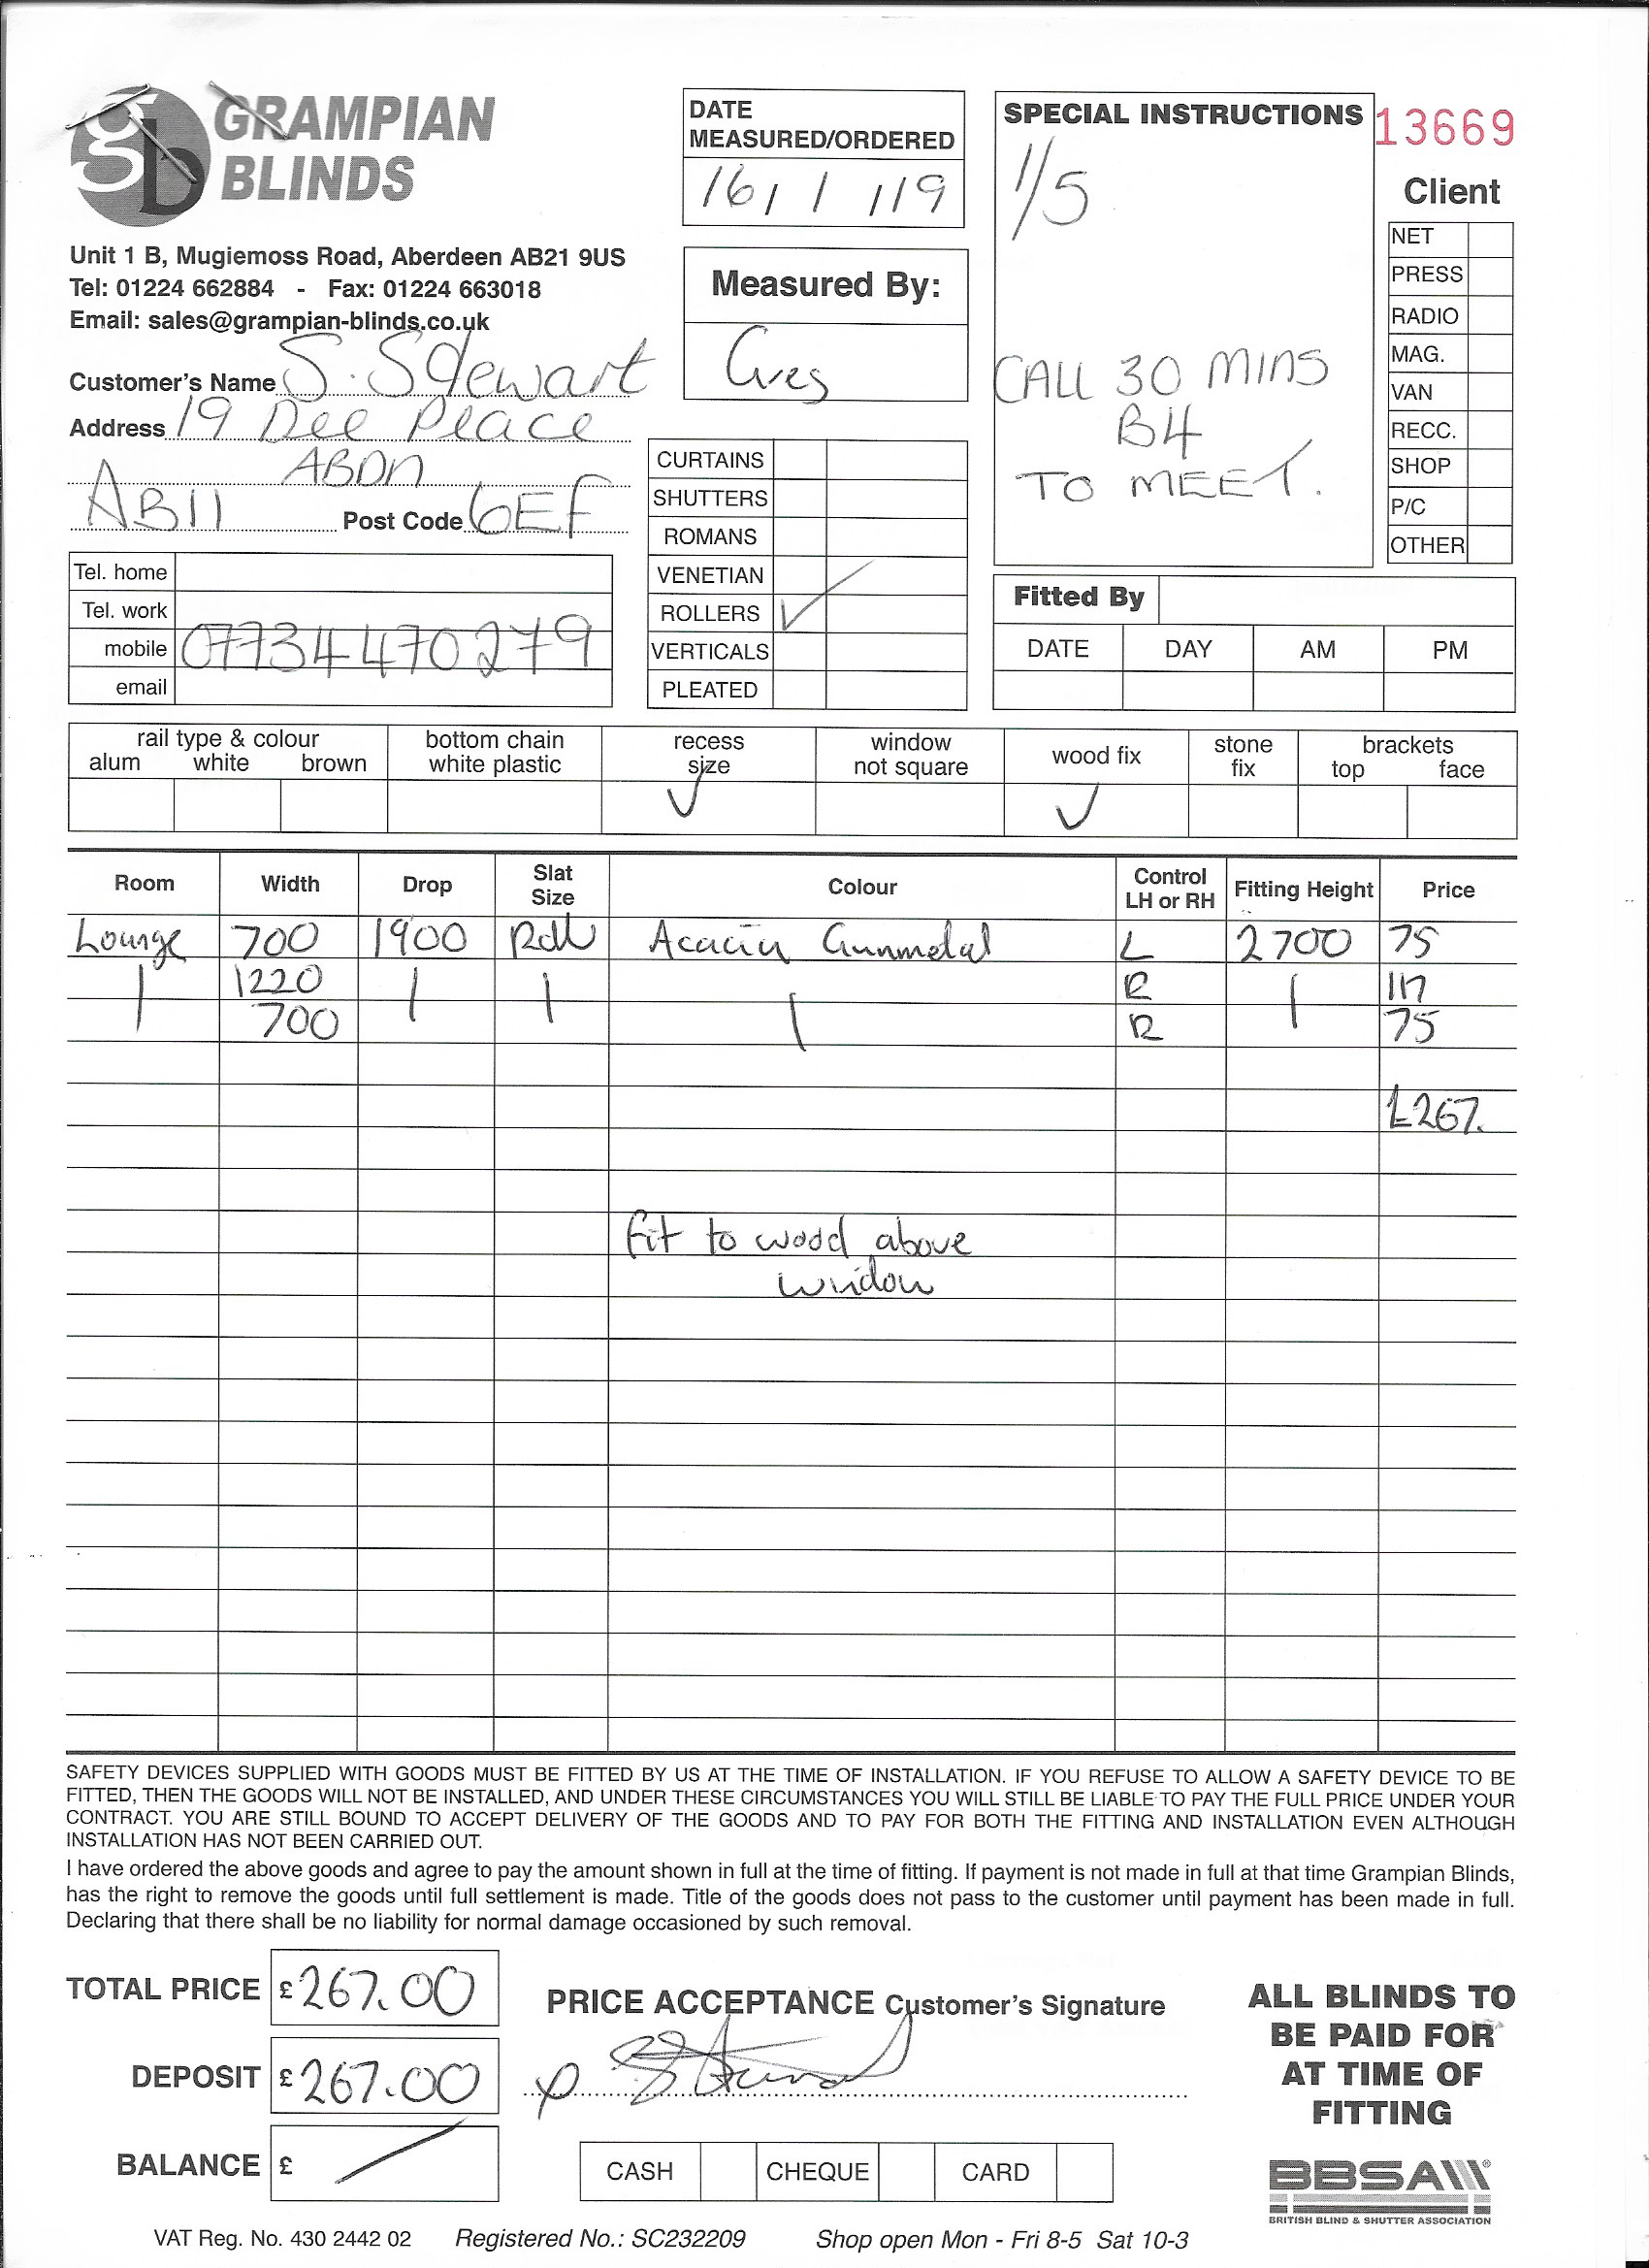 gb GRAMPIAN
BLINDS
Unit 1 B, Mugiemoss Road, Aberdeen AB21 9US
Tel: 01224 662884 - Fax: 01224 663018
Email: sales@grampian-blinds.co.uk
Customer's Name S. Stewart
Address 19 Dee Place
ABDN
AB11 Post Code 6EF
Tel. home
Tel. work
mobile 07734470279
email
DATE
MEASURED/ORDERED
16/1/19
Measured By:
CURTAINS
SHUTTERS
ROMANS
VENETIAN
ROLLERS ✓
VERTICALS
PLEATED
SPECIAL INSTRUCTIONS
1/5
CALL 30 MINS
B4
TO MEET.
13669
Client
NET
PRESS
RADIO
MAG.
VAN
RECC.
SHOP
P/C
OTHER
Fitted By
DATE DAY AM PM
rail type & colour
alum white brown
bottom chain
white plastic
recess
size
✓
window
not square
wood fix
✓
stone
fix
brackets
top face
Room Width Drop Slat Size Colour Control LH or RH Fitting Height Price
Lounge 700 1900 Roll Acacia Gunmetal L 2700 75
1220 R 117
700 R 75
£267.
fit to wood above
window
SAFETY DEVICES SUPPLIED WITH GOODS MUST BE FITTED BY US AT THE TIME OF INSTALLATION. IF YOU REFUSE TO ALLOW A SAFETY DEVICE TO BE
FITTED, THEN THE GOODS WILL NOT BE INSTALLED, AND UNDER THESE CIRCUMSTANCES YOU WILL STILL BE LIABLE TO PAY THE FULL PRICE UNDER YOUR
CONTRACT. YOU ARE STILL BOUND TO ACCEPT DELIVERY OF THE GOODS AND TO PAY FOR BOTH THE FITTING AND INSTALLATION EVEN ALTHOUGH
INSTALLATION HAS NOT BEEN CARRIED OUT.
I have ordered the above goods and agree to pay the amount shown in full at the time of fitting. If payment is not made in full at that time Grampian Blinds,
has the right to remove the goods until full settlement is made. Title of the goods does not pass to the customer until payment has been made in full.
Declaring that there shall be no liability for normal damage occasioned by such removal.
TOTAL PRICE £267.00
DEPOSIT £267.00
BALANCE £
PRICE ACCEPTANCE Customer's Signature
CASH CHEQUE CARD
ALL BLINDS TO
BE PAID FOR
AT TIME OF
FITTING
BBSA
BRITISH BLIND & SHUTTER ASSOCIATION
VAT Reg. No. 430 2442 02 Registered No.: SC232209 Shop open Mon - Fri 8-5 Sat 10-3